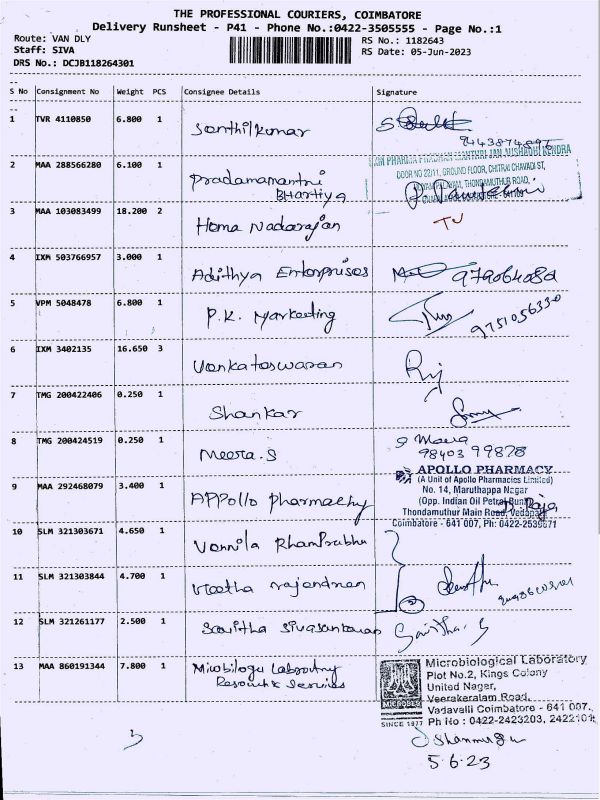 THE PROFESSIONAL COURIERS, COIMBATORE
Delivery Runsheet - P41 - Phone No.:0422-3505555 - Page No.:1
Route: VAN DLY
Staff: SIVA
DRS No.: DCJB118264301
RS No.: 1182643
RS Date: 05-Jun-2023
S No Consignment No Weight PCS Consignee Details Signature
1 TVR 4110850 6.800 1 Senthilkumar
9443874896
2 MAA 288566280 6.100 1 Pradamamantri
Bhartiya
PRADHAN MANTHRI JAN AUSHADHI KENDRA
DOOR NO 22/11, GROUND FLOOR, CHITRAI CHAVADI ST,
THONDAMUTHUR ROAD,
3 MAA 103083499 18.200 2 Homa Nadarajan
4 IXM 503766957 3.000 1 Adithya Enterprises
5 VPM 5048478 6.800 1 P.K. Marketing 9751056330
6 IXM 3402135 16.650 3 Venkateswaran
7 TMG 200422406 0.250 1 Shankar
8 TMG 200424519 0.250 1 Meera.S
S Meera
98403 99878
9 MAA 292468079 3.400 1 Appollo pharmachy
APOLLO PHARMACY
(A Unit of Apollo Pharmacies Limited)
No. 14, Maruthappa Nagar
(Opp. Indian Oil Petrol Bunk)
Thondamuthur Main Road, Vedapatti
Coimbatore - 641 007, Ph: 0422-2539671
10 SLM 321303671 4.650 1 Vennila Rhamprabhu
11 SLM 321303844 4.700 1 Veetha rajendran
12 SLM 321261177 2.500 1 Savitha Sivasankaran Savitha.S
13 MAA 860191344 7.800 1 Micobilogy Laboratry
Research Services
MICROBES
SINCE 1977
Microbiological Laboratory
Plot No.2, Kings Colony
United Nagar,
Veerakeralam Road,
Vadavalli Coimbatore - 641 007.
Ph No : 0422-2423203, 2422101
5.6.23